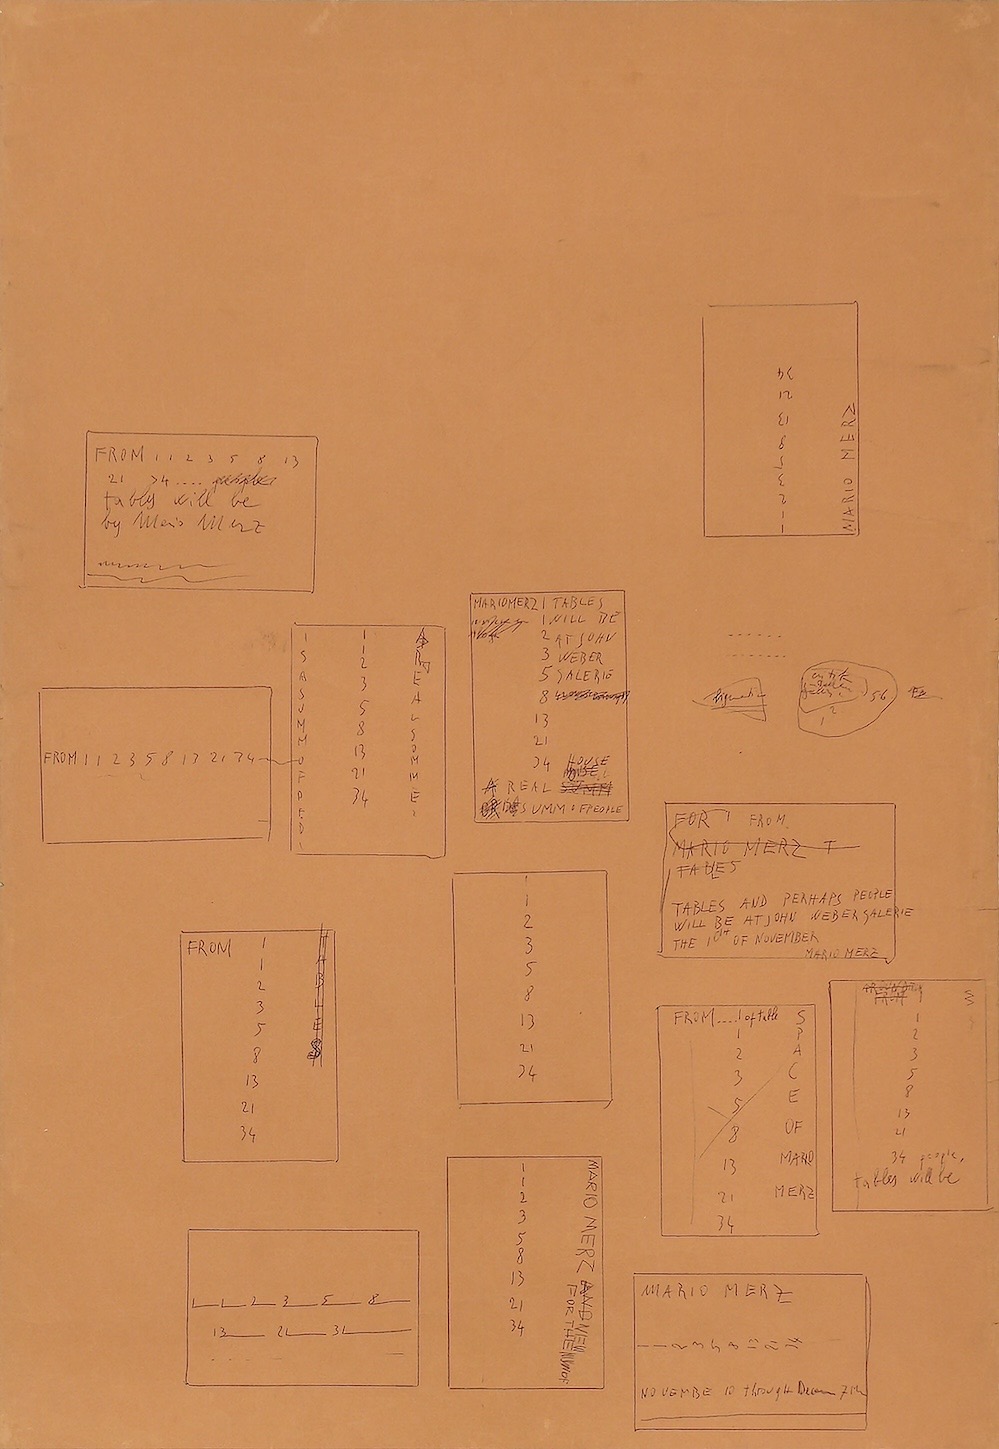 34
21
13
8
5
3
2
1
1
MARIO MERZ
FROM 1 1 2 3 5 8 13
21 34 .... people
tables will be
by Mario Merz
MARIO MERZ 1 TABLES
1 WILL BE
2 AT JOHN
3 WEBER
5 GALERIE
8
13
21
34 HOUSE
A REAL SUMM
SUMM OF PEOPLE
FROM 1 1 2 3 5 8 13 21 34
I
S
A
S
U
M
M
O
F
1
1
2
3
5
8
13
21
34
A
R
E
A
L
S
O
M
M
E
56
1 2
FOR 1 FROM
MARIO MERZ T
TABLES
TABLES AND PERHAPS PEOPLE
WILL BE AT JOHN WEBER GALERIE
THE 10TH OF NOVEMBER
MARIO MERZ
1
1
2
3
5
8
13
21
34
FROM 1
1
2
3
5
8
13
21
34
T
A
B
L
E
S
FROM....1 of table S
1 P
2 A
3 C
5 E
8 OF
13 MARIO
21 MERZ
34
FROM 1
1
2
3
5
8
13
21
34 people,
tables will be
1
1
2
3
5
8
13
21
34
MARIO MERZ AND NEW
FOR THE
1 1 2 3 5 8
13 21 31
MARIO MERZ
1 1 2 3 5 8 13 21 34
NOVEMBE 10 through Decem 7th